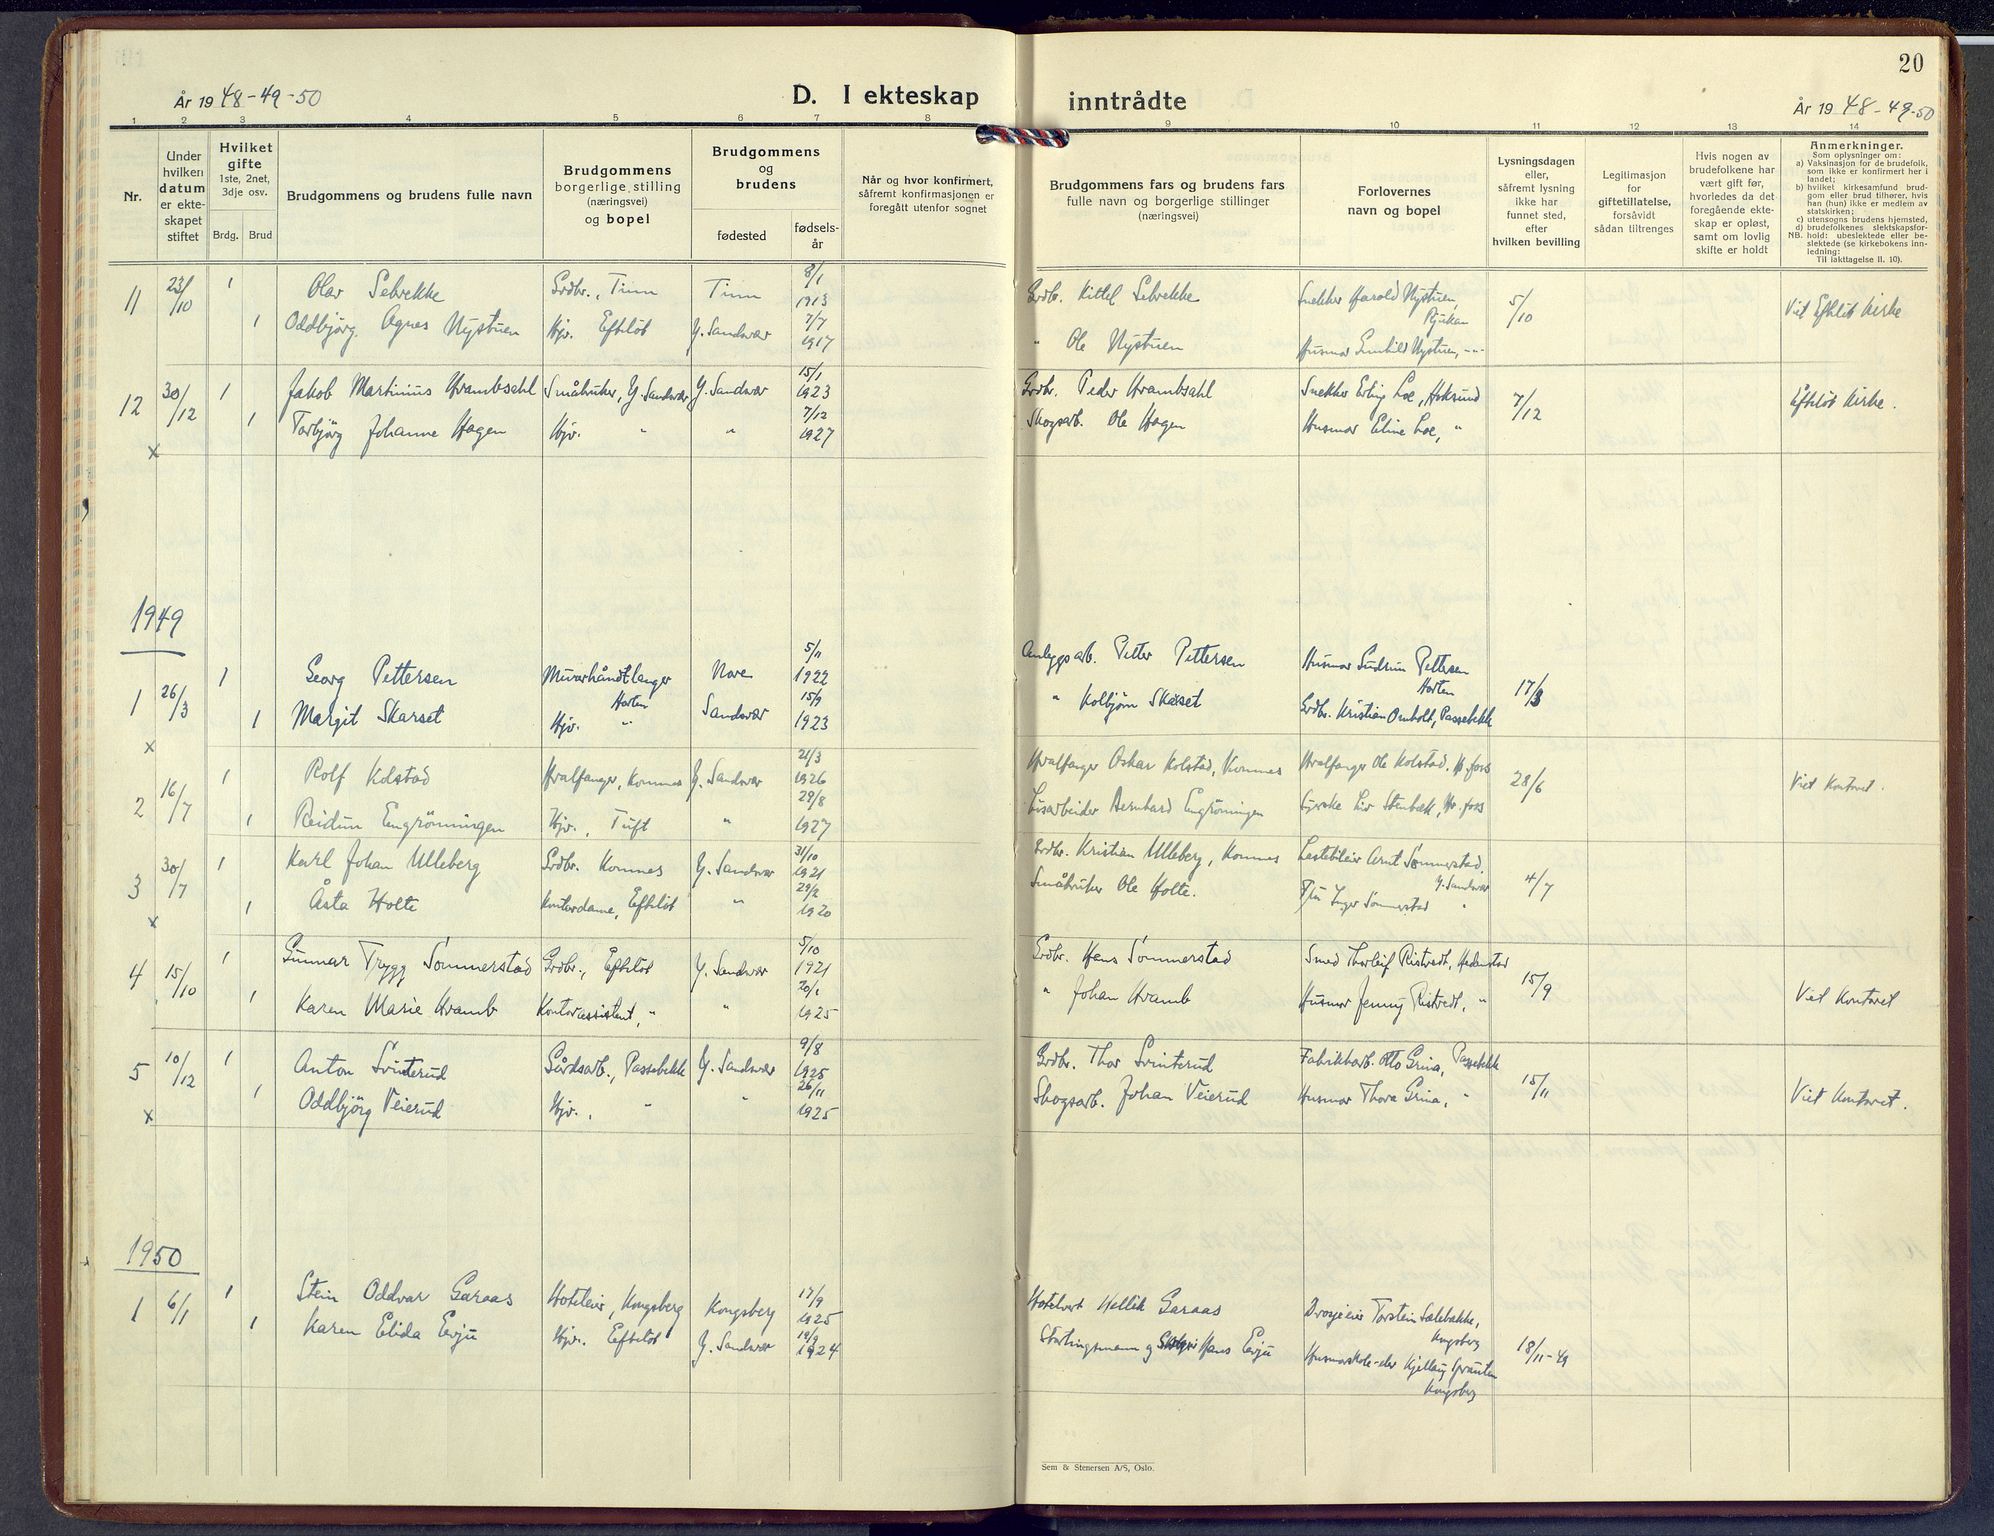 20
År 1948-49-50
D. I ekteskap inntrådte
År 1948-49-50
1 2 3 4 5 6 7 8 9 10 11 12 13 14
Nr.
Under hvilken datum er ekteskapet stiftet
Hvilket gifte 1ste, 2net, 3dje osv.
Brdg. Brud
Brudgommens og brudens fulle navn
Brudgommens borgerlige stilling (næringsvei) og bopel
Brudgommens og brudens
fødested
fødselsår
Når og hvor konfirmert, såfremt konfirmasjonen er foregått utenfor sognet
Brudgommens fars og brudens fars fulle navn og borgerlige stillinger (næringsvei)
Forlovernes navn og bopel
Lysningsdagen eller, såfremt lysning ikke har funnet sted, efter hvilken bevilling
Legitimasjon for giftetillatelse, forsåvidt sådan tiltrenges
Hvis nogen av brudefolkene har vært gift før, hvorledes da det foregående ekteskap er opløst, samt om lovlig skifte er holdt
Anmerkninger.
Som oplysninger om:
a) Vaksinasjon for de brudefolk, som ikke er konfirmert her i landet;
b) hvilket kirkesamfund brudgom eller brud tilhører, hvis han (hun) ikke er medlem av statskirken;
c) utensogns brudens hjemsted,
d) brudefolkenes slektskapsforhold: ubeslektede eller beslektede (se kirkebokens innledning:
NB. Til iakttagelse II. 10).
11 23/10 1 Olav Selvekke Grdbr., Tinn Tinn 8/1 1913 Grdb. Kittel Selvekke Snekker Harald Nystuen, Rjukan 5/10 Viet Efteløt Kirke
1 Oddbjørg Agnes Nystuen Hjv. Efteløt Y. Sandsvær 7/7 1917 " Ole Nystuen Husmor Gunhild Nystuen, -"-
12 30/12 1 Jakob Martinius Hvambsahl Småbruker, Y. Sandsvær Y. Sandsvær 15/1 1923 Grdb. Peder Hvambsahl Snekker Erling Loe, Hokksund 7/12 Efteløt Kirke.
x 1 Torbjörg Johanne Hagen Hjv. " " 7/12 1927 Skogsarb. Ole Hagen Husmor Eline Loe, "
1949
1 26/3 1 Georg Pettersen Murarhåndtlanger Horten Nore 5/11 1922 Anleggsarb. Petter Pettersen Husmor Gudrun Pettersen Horten 17/3
x 1 Margit Skarset Hjv. " Sandsvær 15/9 1923 " Kolbjørn Skarset Grdbr. Kristian Omholt, Passebekk
2 16/7 1 Rolf Kolstad Hvalfanger, Komnes Y. Sandsvær 21/3 1926 Hvalfanger Oskar Kolstad, Komnes Hvalfanger Ole Kolstad. Hv.foss 28/6 Viet Kontoret.
1 Reidun Engrönningen Hjv., Tuft " 29/8 1927 Bernhard Engrönningen Liv Stenbæk, Hv. foss
3 30/7 1 Karl Johan Ulleberg Grdbr. Komnes Y. Sandsvær 31/10 1921 Grdbr. Kristian Ulleberg, Komnes Lastebileier Arnt Sommerstad. Y. Sandsvær 4/7
x 1 Åsta Holte Kontordame, Efteløt " 29/2 1920 Småbruker Ole Holte. Inger Sommerstad "
4 15/10 1 Gunnar Trygg Sommerstad Grdbr., Efteløt Y. Sandsvær 5/10 1921 Grdbr. Hans Sommerstad Smed Thorleif Ristvedt, Hedenstad 15/9
1 Karen Marie Hvamb Kontorassistent, " " 20/1 1925 " Johan Hvamb Husmor Jenny Ristvedt, " Viet Kontoret
5 10/12 1 Anton Svinterud Gårdsarb., Passebekk Y. Sandsvær 9/8 1925 Grdbr. Thor Svinterud Fabrikkarb. Otto Grina, Passebekk 15/11
x 1 Oddbjörg Veierud Hjv., " " 26/11 1925 Skogsarb. Johan Veierud Husmor Thora Grina, " Viet Kontoret.
1950
1 6/1 1 Stein Oddvar Garaas Hoteleier, Kongsberg Kongsberg 17/9 1925 Hotelvert Hellik Garaas Drosjeeier Torstein Sælebakke, Kongsberg 18/11-49
1 Karen Elida Evju Hjv. Efteløt Y. Sandsvær 19/9 1924 Stortingsmann og Hans Evju Kjellaug Kongsberg
Sem & Stenersen A/S, Oslo.